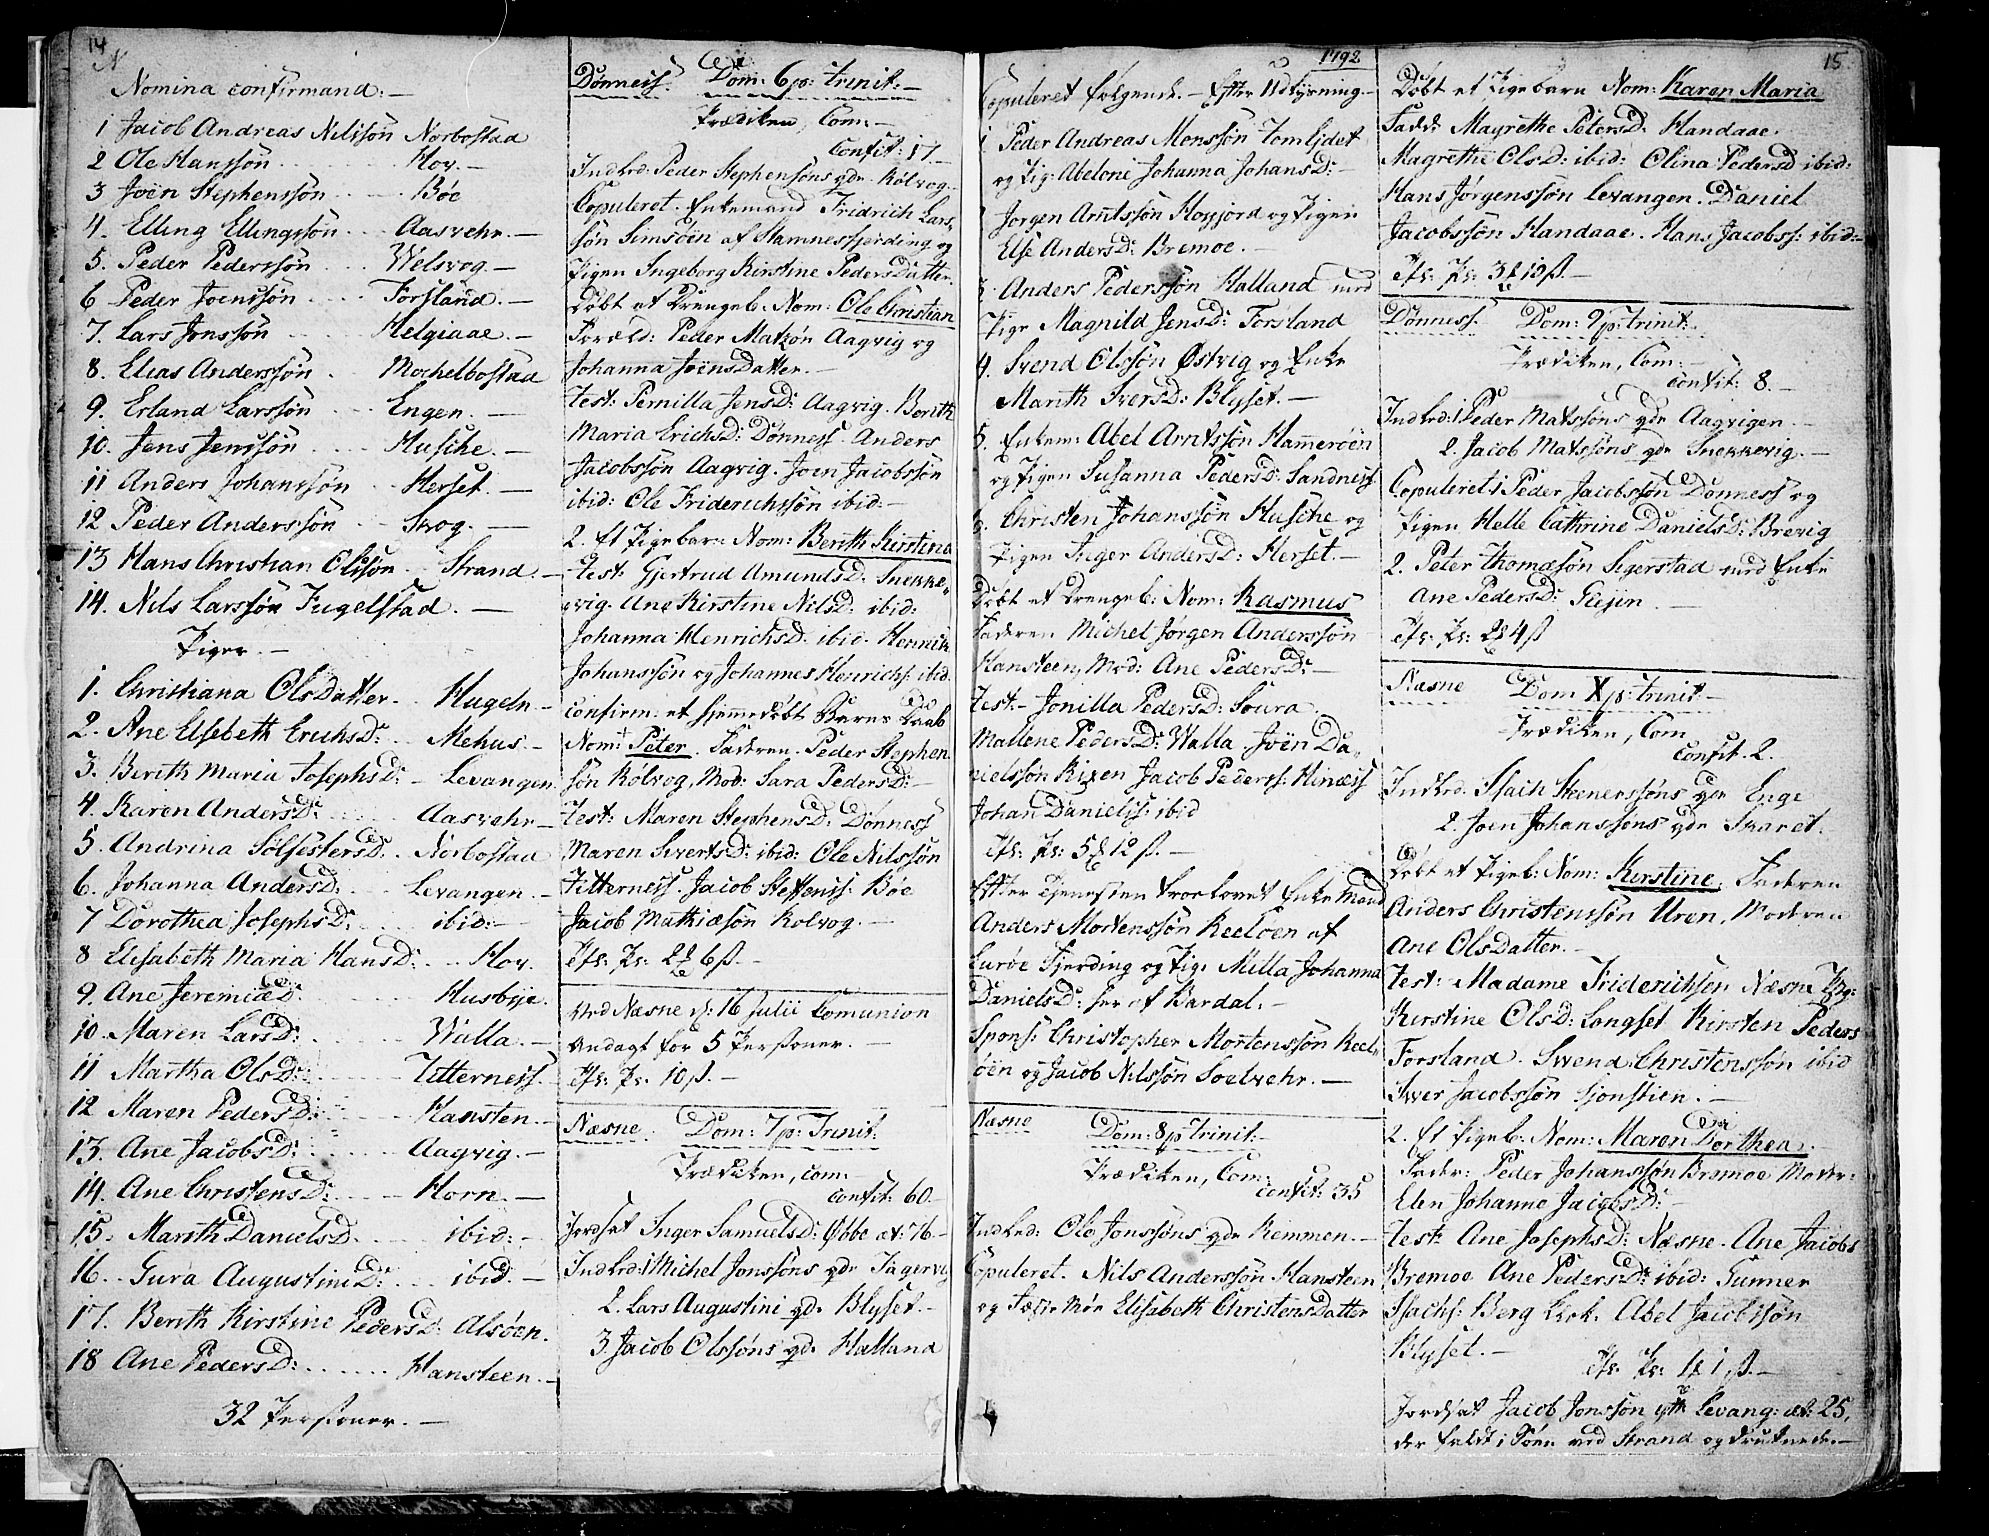 14
N
Nomina confirmand: —
1 Jacob Andreas Nilssøn Norbostad
2 Ole Hanssøn Hov. —
3 Joen Stephenssøn Bøe
4. Elling Ellingssøn Aasvehr. —
5. Peder Pederssøn Welsvog. —
6 Peder Joenssøn Forsland. —
7. Lars Jonssøn Helgiaae. —
8. Elias Anderssøn Mochelbostad
9. Erland Larssøn Engen. —
10. Jens Jenssøn Husche. —
11 Anders Johanssøn Herset. —
12 Peder Anderssøn Skog. —
13 Hans Christian Olssøn Strand —
14. Nils Larssøn Fugelstad. —
Piger. —
1. Christiana OlsDatter Hugeln —
2. Ane Elsebeth ErichsD: Mehus. —
3. Berith Maria JosephsD: Levangen.
4. Karen AndersD: Aasvehr —
5. Andrina SølfestersD. Norbostad
6. Johanna AndersD: Levangen. —
7 Dorothea JosephsD: ibid: —
8 Elisabeth Maria HansD: Hov.
9. Ane JeremiæD: Husbye.
10. Maren LarsD: Walla. —
11 Martha OlsD: Titterness. —
12 Maren PedersD: Hansten —
13. Ane JacobsD: Aagvig. —
14. Ane ChristensD: Horn. —
15. Marith DanielsD. ibid: —
16. Gura AugustiniD: ibid. —
17. Berith Kirstine PedersD: Alsøen.
18 Ane PedersD: Hansteen. —
32 Personer. —
Dønness. Dom: 6 p: Trinit: —
Prædiken, Com: —
Confit: 17 —
Indled: Peder Stephensøns qde Kølvog.
Copuleret. Enkemand Fridrich Lars-
søn Simsøen af Stamnessfierding og
Pigen Ingeborg Kirstine PedersDatter.
Døbt et Drengeb: Nom: Ole Christian
Foræld: Peder Matzøn Aagvig og
Johanna JoensDatter. —
Test: Pernilla JensD: Aagvig. Berith
Maria ErichsD: Dønness. Anders
Jacobssøn Aagvig. Joen Jacobssøn
ibid: Ole Friderichssøn ibid: —
2. Et Pigebarn Nom: Berith Kirstina
Test: Gjertrud AmundsD: Snekke-
vig. Ane Kirstine NilsD: ibid:
Johanna HenrichsD: ibid. Henrich
Johanssøn og Johannes Henrichs: ibid.
confirm: et hjemmedøbt Barns Daab
Nom: Peter. Faderen. Peder Stephen
søn Kølvog, Mod: Sara PedersD: —
Test: Maren StephensD: Dønness
Maren SivertsD: ibid: Ole Nilssøn
Titterness. Jacob Steffenss: Bøe
Jacob Mathiæsøn Kolvog. —
Ofr: Pr: 2 6 ß. —
Ved Næsne d: 16 Julii Comunion
Andagt for 5 Personer. —
Ofr: Pr: 10 ß. —
Næsne. Dom: 7 p: Trinit:
Prædiken, com.
confit: 60 —
Jordsat Inger SamuelsD: Øbbe æt: 76 —
Indled: 1 Michel Jonssøns qde Jagervig
2. Lars Augustini qde Blyset. —
3. Jacob Olssøns qde Halland
1792
Copuleret følgende. — Efter Udlysning —
1 Peder Andreas Monssøn Tomlidet
og Pig: Abelone Johanna JohansD: —
2 Jorgen Arntssøn Hogjord og Pigen
Else AndersD: Bremoe. —
3. Anders Pederssøn Halland med
Pige Magnild JensD: Forsland
4. Svend Olssøn Østvig og Enke
Marith IversD: Blyset. —
5. Enkem: Abel Arntssøn Hammerøen
og Pigen Susanna PedersD: Sandness
6. Christen Johanssøn Husche og
Pigen Inger AndersD: Herset. —
Døbt et Drengeb: Nom: Rasmus
Faderen Michel Jørgen Anderssøn
Hansteen, Mod: Ane PedersD: —
Test — Jonilla PedersD: Soura.
Mallene PedersD: Walla. Joën Da-
nielssøn Rixen Jacob Pederss: Hinæss
Johan Danielss: ibid
Ofr: Pr: 5 12 ß. —
Efter Tjenesten troelovet Enkemand
Anders Mortenssøn Reeløen af
Lurøe Fjerding og Pig: Milla Johanna
DanielsD: her af Bardal. —
Spons: Christopher Mortenssøn Reel-
øen og Jacob Nilssøn Soelvehr. —
Næsne Dom: 8 p Trinit: —
Prædiken, Com:
confit: 35
Indled: Ole Jonssøns qde Remmen. —
Copuleret. Nils Anderssøn Hansteen
og Fæste Møe Elisabeth ChristensDatter
15
Døbt et Pigebarn Nom: Karen Maria
Fadd: Magrethe PetersD. Handaae.
Magrethe OlsD: ibid: Olina PedersD ibid:
Hans Jørgenssøn Levangen. Daniel
Jacobssøn Handaae. Hans Jacobss: ibid: —
Ofr: Pr: 3 12 ß. —
Dønness. Dom: 9 p: Trinit:
Prædiken, Com: —
confit: 8. —
Indled: 1 Peder Matssøns qde Aagvigen. —
2. Jacob Matssøns qde Snekkevig. —
Copuleret 1 Peder Jacobssøn Dønness og
Pigen Helle Cathrine DanielsD: Brevig
2. Peter Thomæsøn Sigerstad med Enke
Ane PedersD: Glejn. —
Ofr: Pr: 2 4 ß
Næsne Dom X p: Trinit —
Prædiken, Com
Confit. 2.
Indled. Isach Steenerssøns qde Enge
2. Joen Johanssøns qde Skaret.
Døbt et Pigeb: Nom: Kirstine. Faderen
Anders Christenssøn Uren, Moderen
Ane OlsDatter. —
Test: Madame Friderichsøn Næsne Pig:
Kirstine OlsD: Longset Kirsten Peders
Forsland. Swend Christenssøn ibid
Iwer Jacobssøn Sjonstien. —
2. Et Pigeb: Nom: Maren Dorthea.
Fader: Peder Johanssøn Bremoe Moder:
Elen Johanna JacobsD: —
Test: Ane JosephsD: Næsne. Ane Jacobs
Bremoe Ane PedersD: ibid: Gunner
Isachs: Berg Abel Jacobssøn
Blyset. —
Ofr: Pr: 1 1 ß. —
Jordsat Jacob Jonssøn Levang: æt: 25,
der faldt i Søen ved Strand og druknede. —